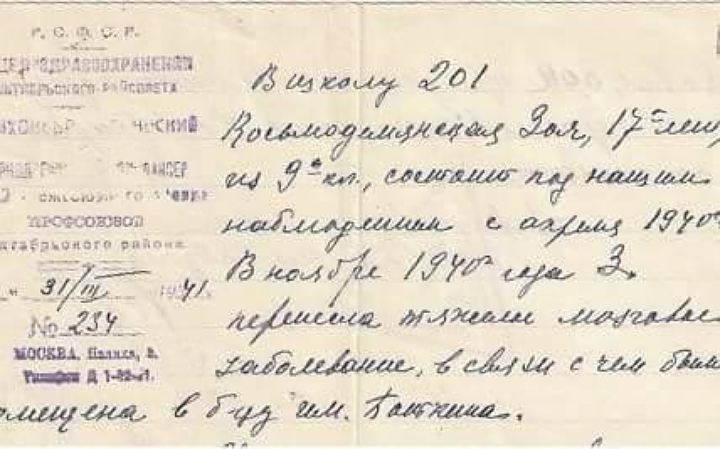 Р. С. Ф. С. Р.
ЗДРАВООХРАНЕНИЯ
РАЙСОВЕТА
ПРОФСОЮЗОВ
района
" 31/III 1941.
№ 234
МОСКВА,
Телефон Д 1-
В школу 201
Космодемянская Зоя, 17 лет,
из 9 кл., состоит под нашим
наблюдением с апреля 1940
В ноябре 1940 года З.
перенесла тяжелое мозговое
заболевание, в связи с чем была
помещена в б-цу им. Боткина.